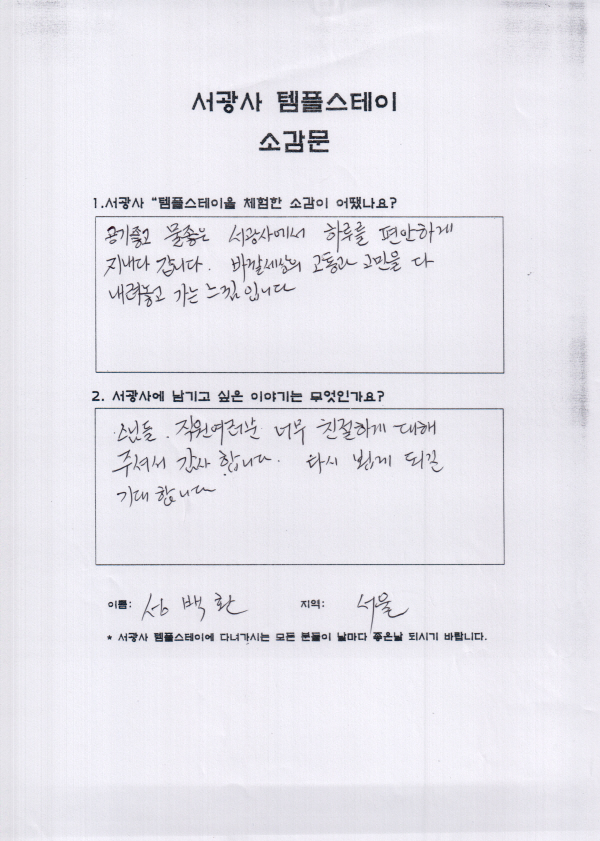 서광사 템플스테이
소감문
1.서광사 "템플스테이을 체험한 소감이 어땠나요?
공기좋고 물좋은 서광사에서 하루를 편안하게
지내다 갑니다. 바깥세상의 고통과 고민을 다
내려놓고 가는 느낌 입니다
2. 서광사에 남기고 싶은 이야기는 무엇인가요?
스님들. 직원여러분 너무 친절하게 대해
주셔서 감사 합니다. 다시 뵙게 되길
기대 합니다
이름: 성백환 지역: 서울
* 서광사 템플스테이에 다녀가시는 모든 분들이 날마다 좋은날 되시기 바랍니다.